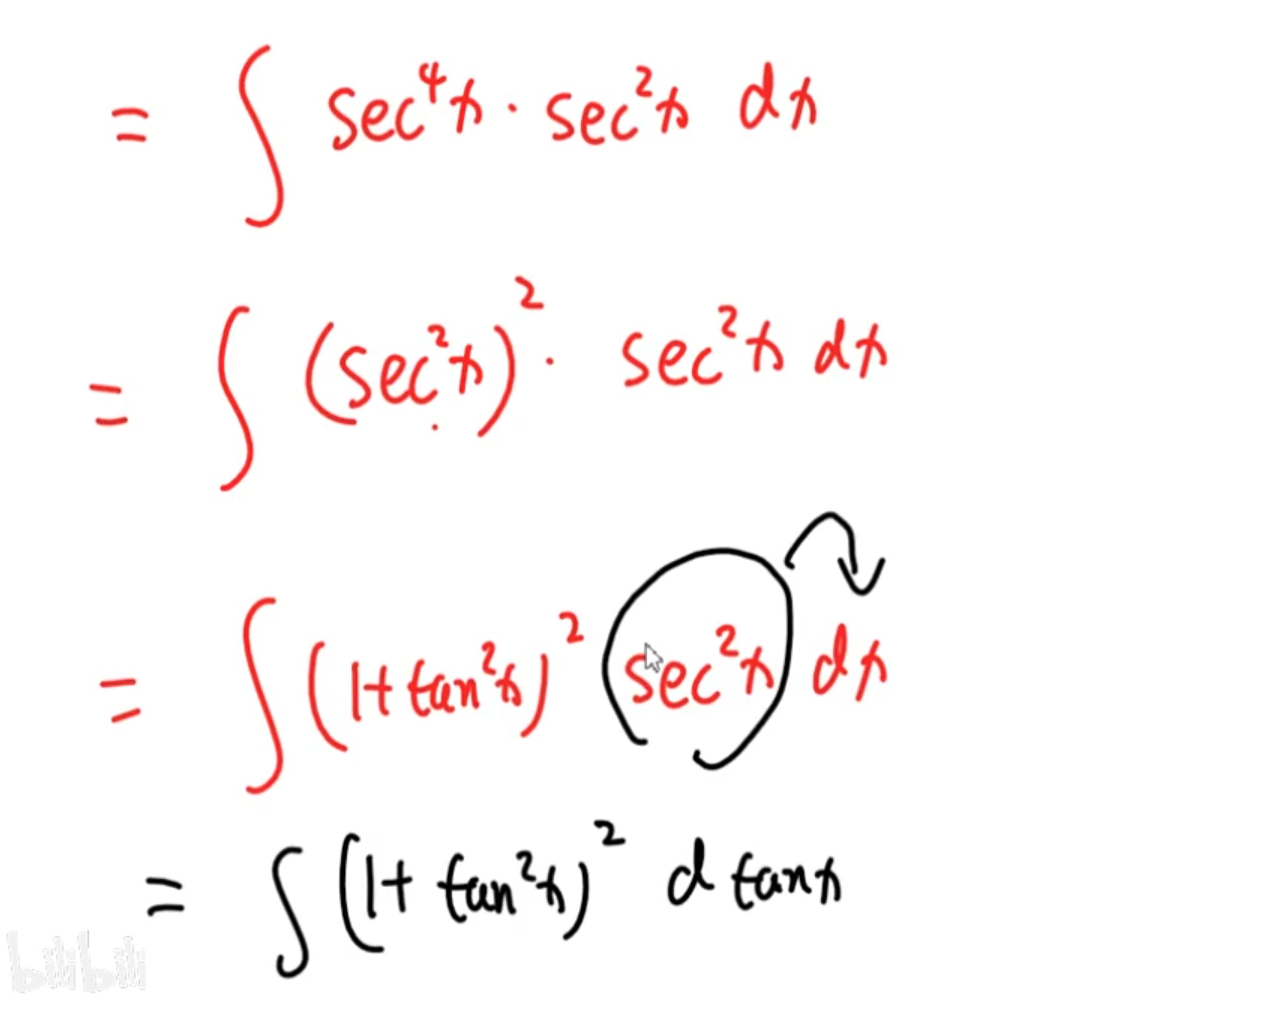 = ∫ sec⁴x · sec²x dx
= ∫ (sec²x)² · sec²x dx
= ∫ (1+tan²x)² sec²x dx
= ∫ (1+ tan²x)² d tanx
bilibili